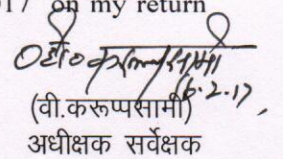 17 on my return
6.2.17,
(वी.करूप्पसामी)
अधीक्षक सर्वेक्षक